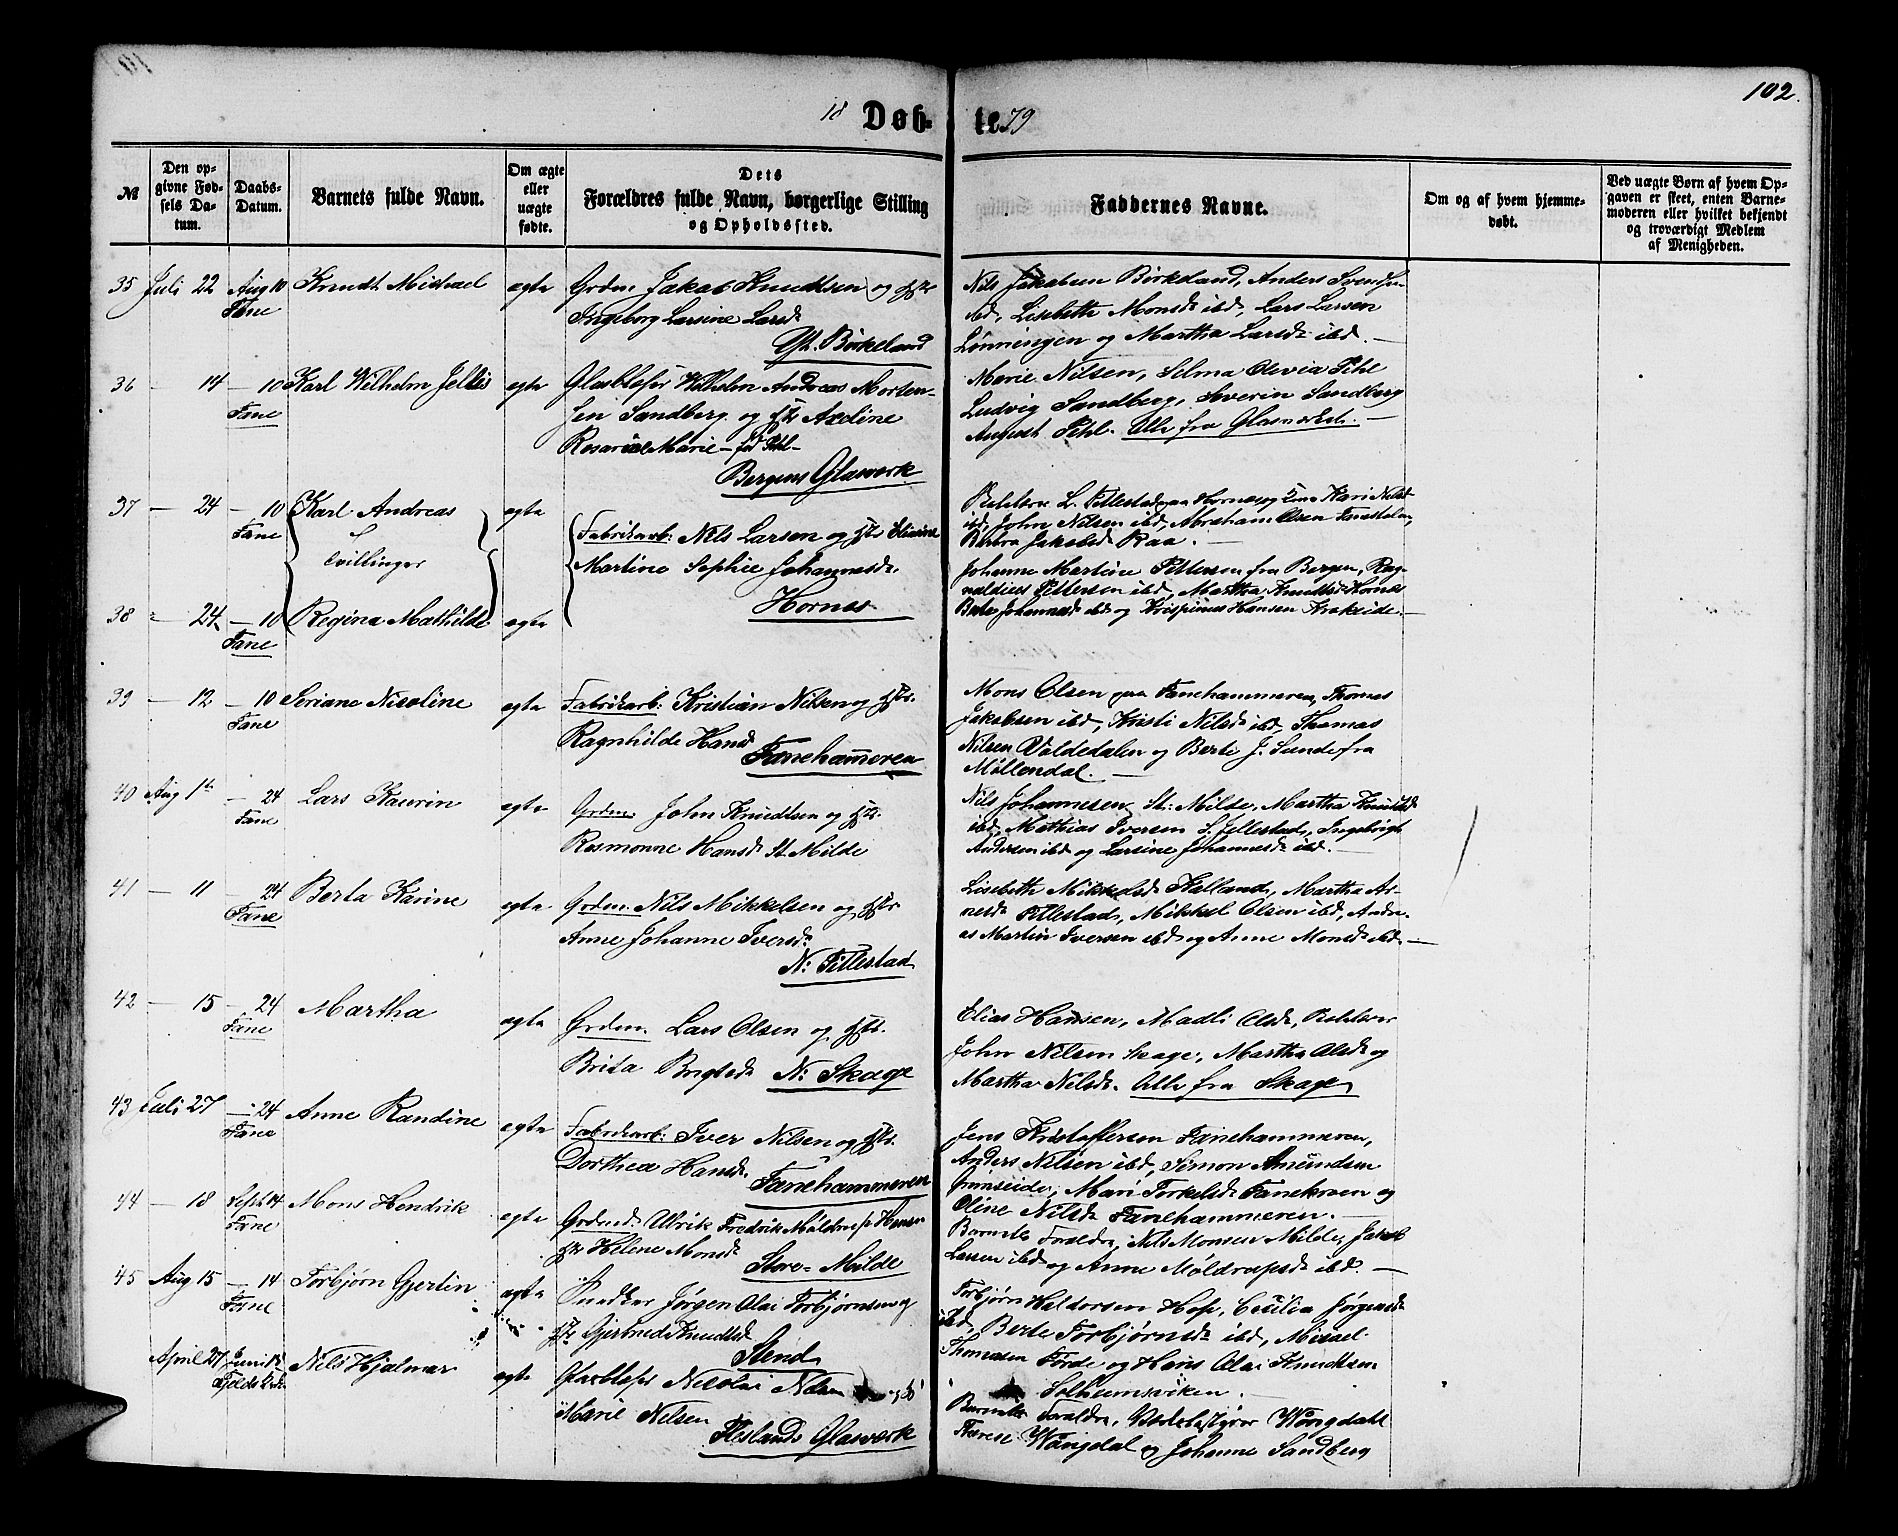 102.
18 Døb- te 79
№
Den op-
givne Fød-
sels Da-
tum.
Daabs-
Datum.
Barnets fulde Navn.
Om ægte
eller
uægte
fødte.
Dets
Forældres fulde Navn, borgerlige Stilling
og Opholdssted.
Faddernes Navne.
Om og af hvem hjemme-
døbt.
Ved uægte Børn af hvem Op-
gaven er skeet, enten Barne-
moderen eller hvilket bekjendt
og troværdigt Medlem
af Menigheden.
35 Juli 22 Aug 10 Knudt Michael ægte Grdm. Jakob Knudtsen og Hstr
Fane Ingeborg Larsine Larsd.
Birkeland
Nils Jakobsen Birkeland, Anders Svendsen
ibd, Lisebeth Monsd. ibd, Lars Larsen
Lønningen og Martha Larsd. ibd. —
36 — 14 — 10 Karl Wilhelm ægte Glasblæser Wilhelm Andreas Morten-
Fane sen Sandberg og Hstr Axeline
Marie — fød Pihl —
Bergens Glasværk
Marie Nilsen, Selma Olevia Pihl
Ludvig Sandberg, Severin Sandberg
August Pihl. Alle fra Glasværket. —
37 — 24 — 10 Karl Andreas ægte
Fane Tvillinger
Fabrikarb: Nils Larsen og Hstr
Martine Sophie Johannesd.
Hornes
L. Titlestad Hornes og Kari Nilsd.
ibd, John Nilsen ibd, Abraham Olsen
Barbra Jakobsd. Raa. —
38 - 24 — 10 Regine Mathilde ægte
Fane
Johanne Martine Pettersen fra Bergen, Rag-
Pettersen ibd, Martha Knudtsd. Hornes
Berta Johannesd. ibd og Krispinus Hansen Krokeide. —
39 — 12 — 10 Seriane Nicoline ægte Fabrikarb: Kristian Nilsen og Hstr.
Fane Ragnhilde Hansd
Fanehammeren
Mons Olsen Fanehammeren, Thomas
Jakobsen ibd, Kristi Nilsd. ibd, Thomas
Nilsen og Berte J. Sunde fra
Møllendal. —
40 Aug 1ste — 24 Lars Kaurin ægte Grdm. John Knudtsen og Hstr.
Fane Rasmonne Hansd. St. Milde
Nils Johannesen St: Milde, Martha Knudtsd.
ibd, Mathias Iversen S. Jellestad, Ingebrigt
Andersen ibd og Larsine Johannesd. ibd. —
41 — 11 — 24 Berta Karine ægte Grdm. Nils Mikkelsen og Hstr
Fane Anne Johanne Iversd.
N: Titlestad
Lisebeth Mikkelsd. Kalland, Martha Ar-
nesd. Titlestad, Mikkel Olsen ibd, Andre-
as Martin Iversen ibd og Anne Monsd. ibd —
42 — 15 — 24 Martha ægte Grdm. Lars Olsen og Hstr.
Fane Brita Brigtsd. N: Skage
Elias Hansen, Madli Olsd,
John Nilsen Skage, Martha Olsd. og
Martha Nilsd. Alle fra Skage
43 Juli 27 — 24 Anne Randine ægte Fabrikarb: Iver Nilsen og Hstr.
Fane Dorthea Hansd.
Fanehammeren
Jens Kristoffersen Fanehammeren,
Anders Nilsen ibd, Simon Amundsen
Grimseide, Mari Torkelsd. Fanekroen og
Oline Nilsd. Fanehammeren. —
44 — 18 Sept. 14 Mons Hendrik ægte Ulrik Fredrik
Fane Hstr Helene Monsd.
Store-Milde
Barnets Forældre, Nils Monsen Milde, Jakob
Larsen ibd og Anne ibd. —
45 Aug 15 — 14 Torbjørn Gjertin ægte Snedker Jørgen Olai Torbjørnsen og
Fane Hstr Gjertrud Knudtsd
Stend
Torbjørn Haldorsen Hop, Cecilia Jørgensd.
ibd, Berte Torbjørnsd. ibd, Mikael
Thomasen Førde og Hans Olai Knudtsen
Solheimsviken. —
April 27 Juni Nils Hjalmar ægte Glasblæser Nicolai
Marie Nilsen
Fleslands Glasværk
Barnets Forældre, Wingdahl
Wingdal og Johanne Sandberg